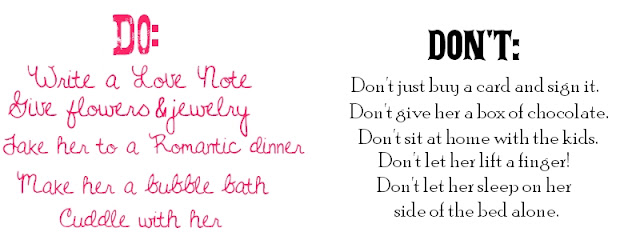 DO:
Write a Love Note
Give flowers & jewelry
Take her to a Romantic dinner
Make her a bubble bath
Cuddle with her
DON'T:
Don't just buy a card and sign it.
Don't give her a box of chocolate.
Don't sit at home with the kids.
Don't let her lift a finger!
Don't let her sleep on her
side of the bed alone.